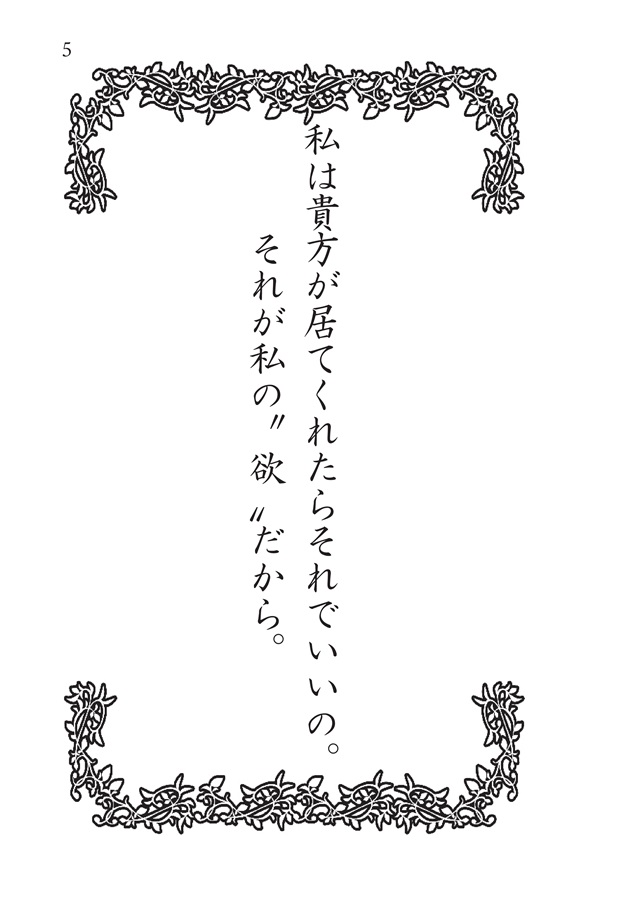 5
私は貴方が居てくれたらそれでいいの。
それが私の〝欲〟だから。